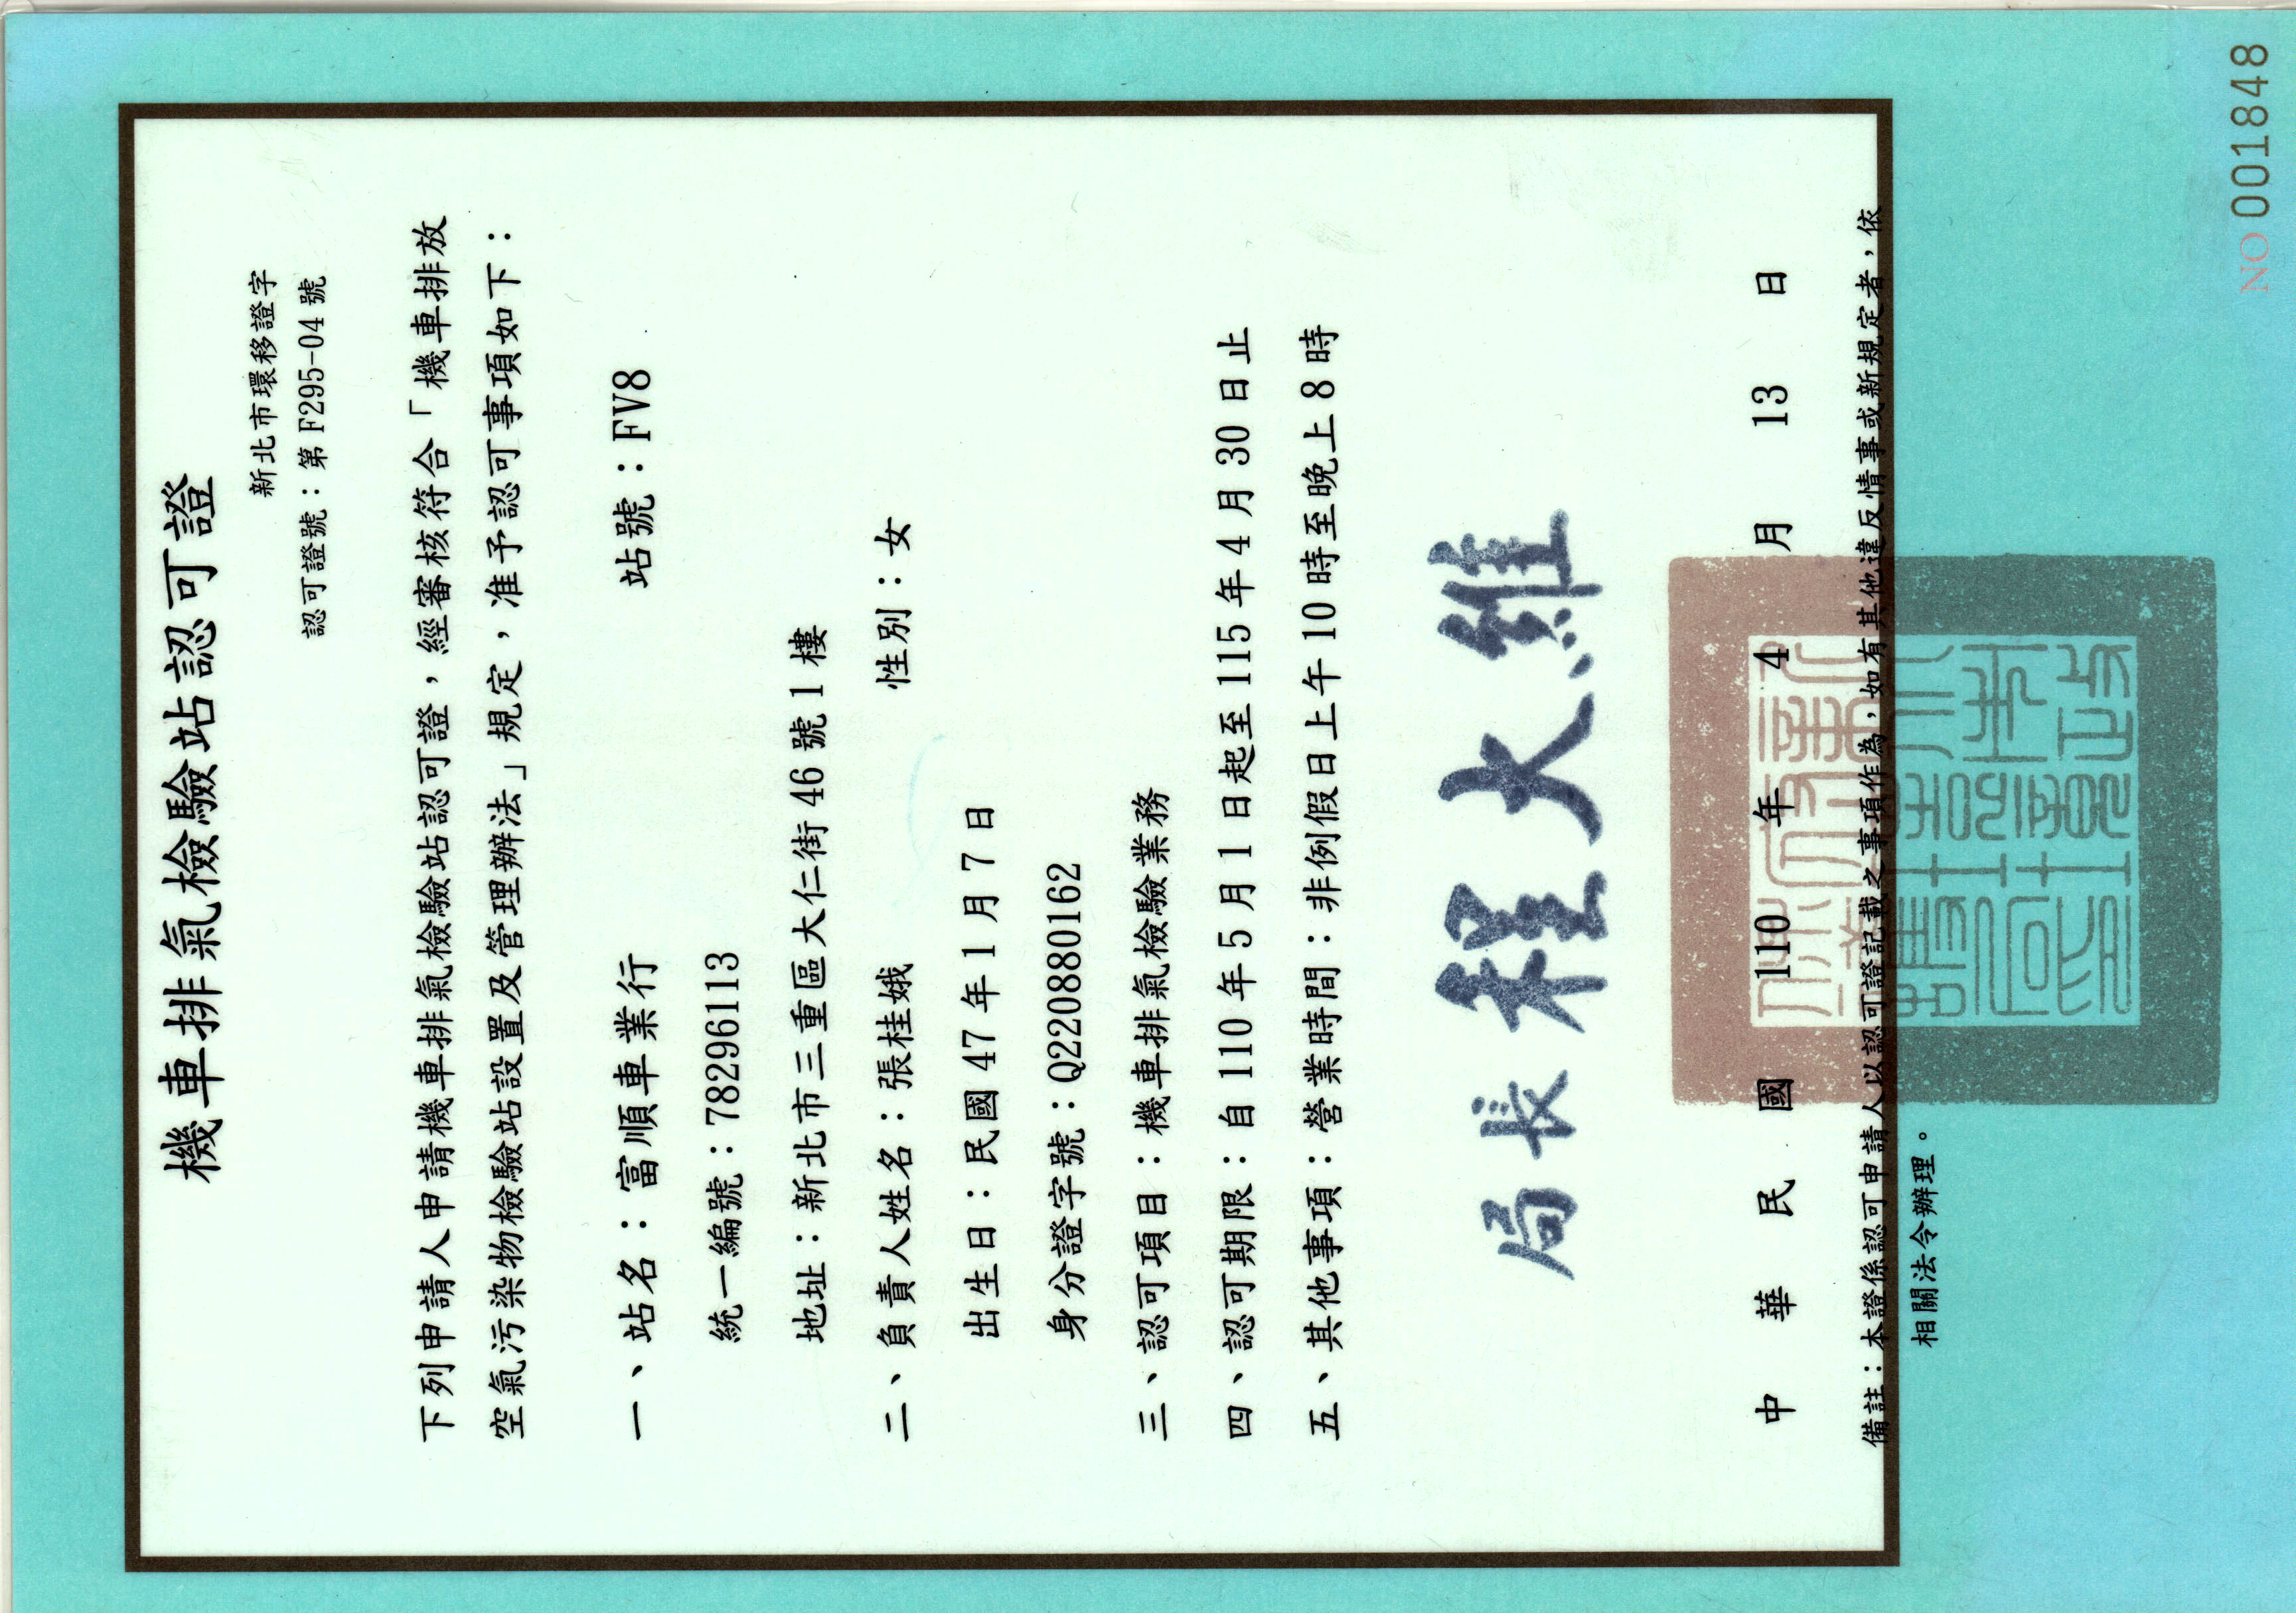 機車排氣檢驗站認可證
新北市環移證字
認可證號：第F295-04號
下列申請人申請機車排氣檢驗站認可證，經審核符合「機車排放
空氣污染物檢驗站設置及管理辦法」規定，准予認可事項如下：
一、站名：富順車業行 站號：FV8
統一編號：78296113
地址：新北市三重區大仁街46號1樓
二、負責人姓名：張桂娥 性別：女
出生日：民國47年1月7日
身分證字號：Q220880162
三、認可項目：機車排氣檢驗業務
四、認可期限：自110年5月1日起至115年4月30日止
五、其他事項：營業時間：非例假日上午10時至晚上8時
局長程大維
中華民國110年4月13日
備註：本證係認可申請人以認可證記載之事項作為，如有其他違反情事或新規定者，依
相關法令辦理。
NO 001848